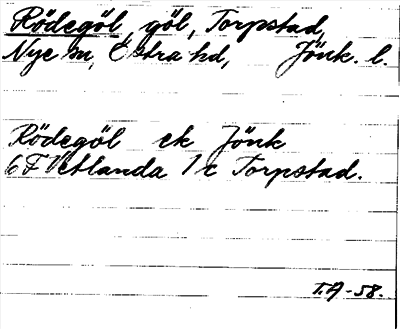 Rödegöl, göl, Torpstad,
Nye sn, Östra hd, Jönk. l.
Rödegöl ek Jönk
6F Vetlanda 1c Torpstad.
T.A-58.